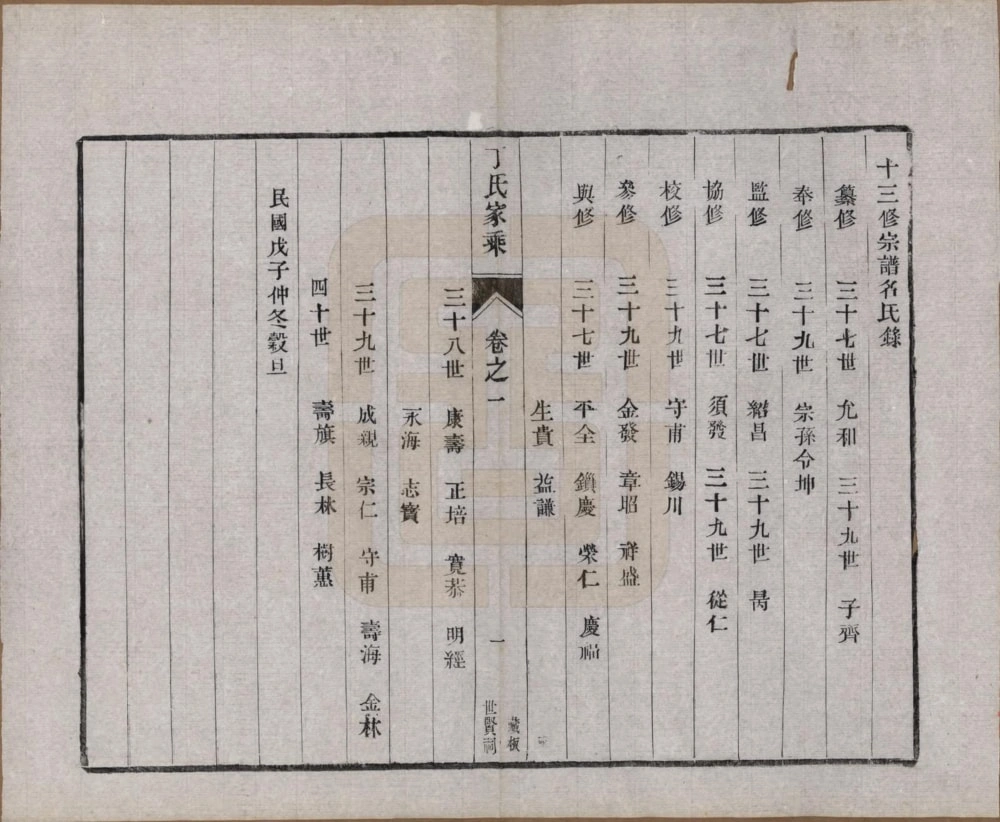 十三修宗譜名氏錄
纂修 三十七世 允和 三十九世 子齊
奉修 三十九世 宗孫令坤
監修 三十七世 紹昌 三十九世 昺
協修 三十七世 須發 三十九世 從仁
校修 三十九世 守甫 錫川
參修 三十九世 金發 章昭 祥盛
與修 三十七世 不全 鎖慶 榮仁 慶福
生貴 益謙
丁氏家乘 卷之一 一 世賢祠
藏板
三十八世 康壽 正培 寬恭 明經
永海 志寶
三十九世 成親 宗仁 守甫 壽海 金林
四十世 壽旗 長林 樹薰
民國戊子仲冬穀旦